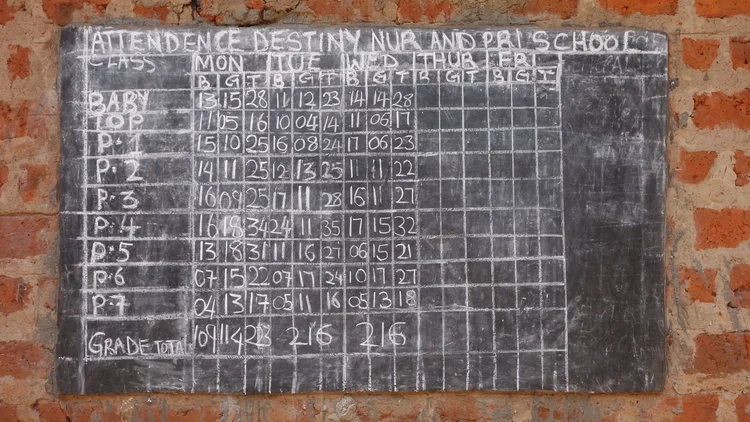 ATTENDENCE DESTINY NUR AND PRI SCHOOL
CLASS MON TUE WED THUR FRI
B G T B G T B G T B G T B G T
BABY 13 15 28 11 12 23 14 14 28
TOP 11 05 16 10 04 14 11 06 17
P.1 15 10 25 16 08 24 17 06 23
P.2 14 11 25 12 13 25 11 11 22
P.3 16 09 25 17 11 28 16 11 27
P.4 16 18 34 24 11 35 17 15 32
P.5 13 18 31 11 16 27 06 15 21
P.6 07 15 22 07 17 24 10 17 27
P.7 04 13 17 05 11 16 05 13 18
GRADE TOTAL 109 114 23 216 216